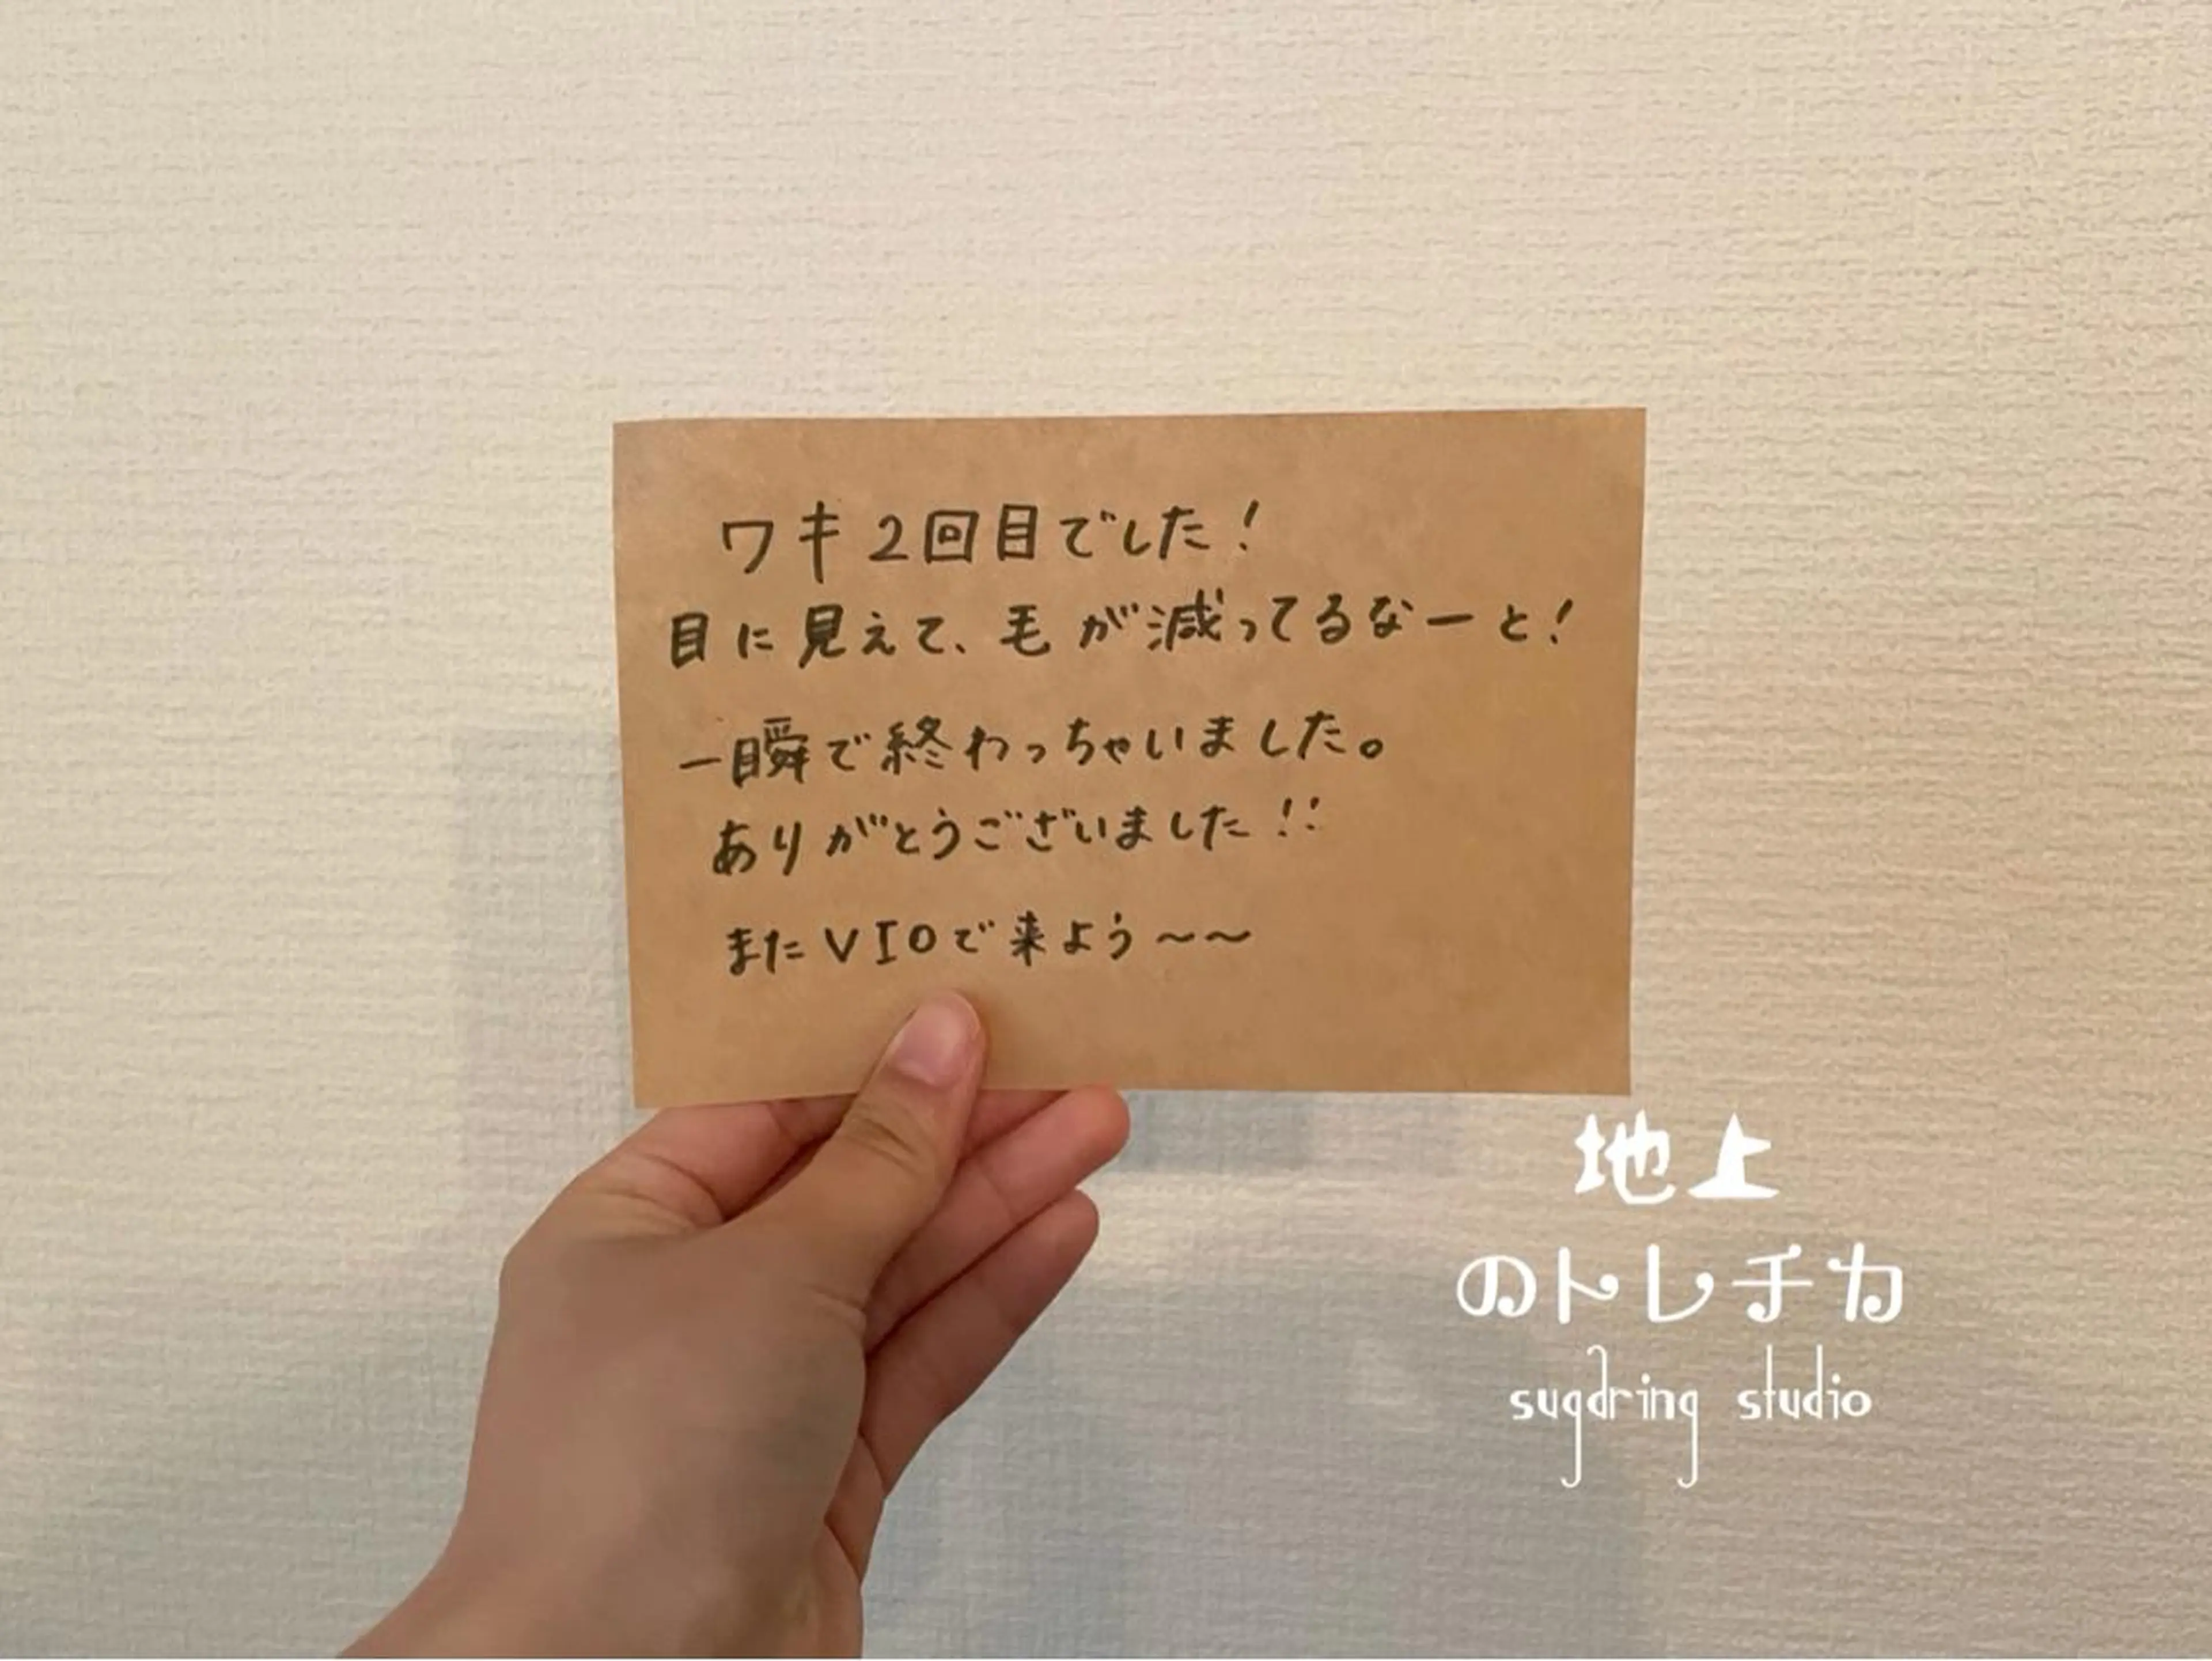 ワキ2回目でした!
目に見えて、毛が減ってるなーと!
一瞬で終わっちゃいました。
ありがとうございました!!
またVIOで来よう〜〜
地上
のトレチカ
sugaring studio